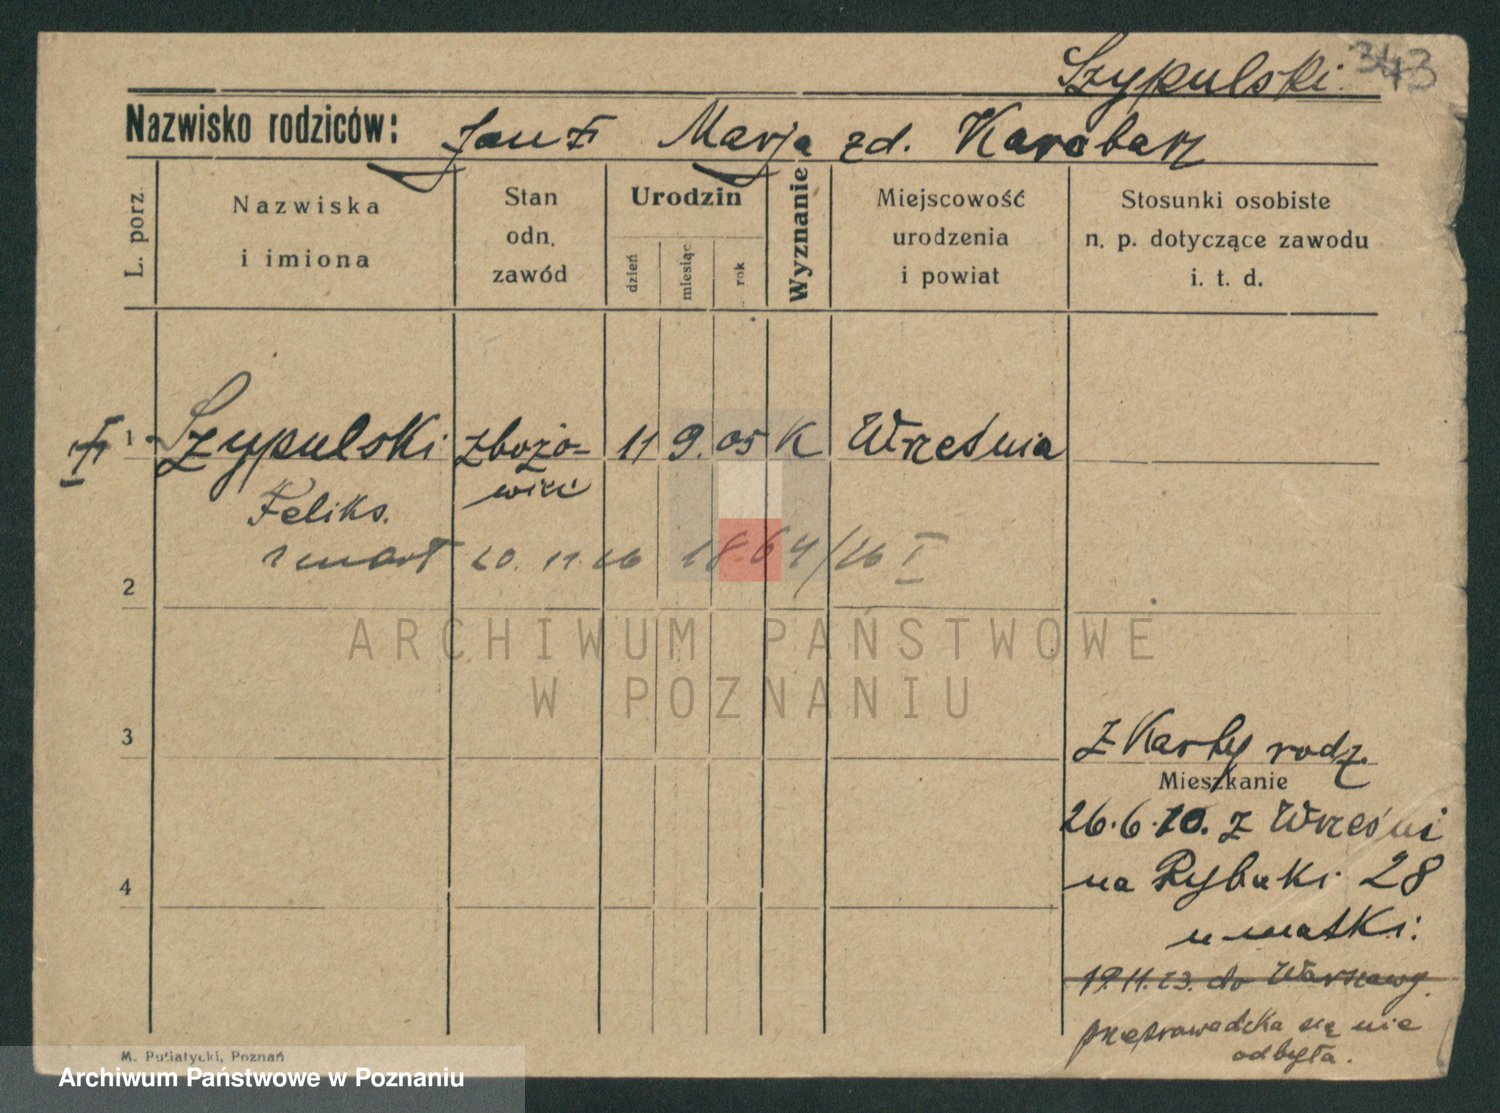 Szypulski. 343
Nazwisko rodziców: Jan Marja zd. Karcbarz
L. porz.
Nazwiska
i imiona
Stan
odn.
zawód
Urodzin
dzień
miesiąc
rok
Wyznanie
Miejscowość
urodzenia
i powiat
Stosunki osobiste
n. p. dotyczące zawodu
i. t. d.
1 Szypulski zbożo- 11 9. 05 K Września
Feliks. wiec
zmarł 20. 11. 26 1864/26 I
2
ARCHIWUM PAŃSTWOWE
W POZNANIU
3
z Karty rodz.
Mieszkanie
26.6.10. z Wrześni
4
na Rybaki 28
u matki.
19.11.23. do Warszawy.
przeprowadzka się nie
odbyła.
M. Putiatycki, Poznań
Archiwum Państwowe w Poznaniu